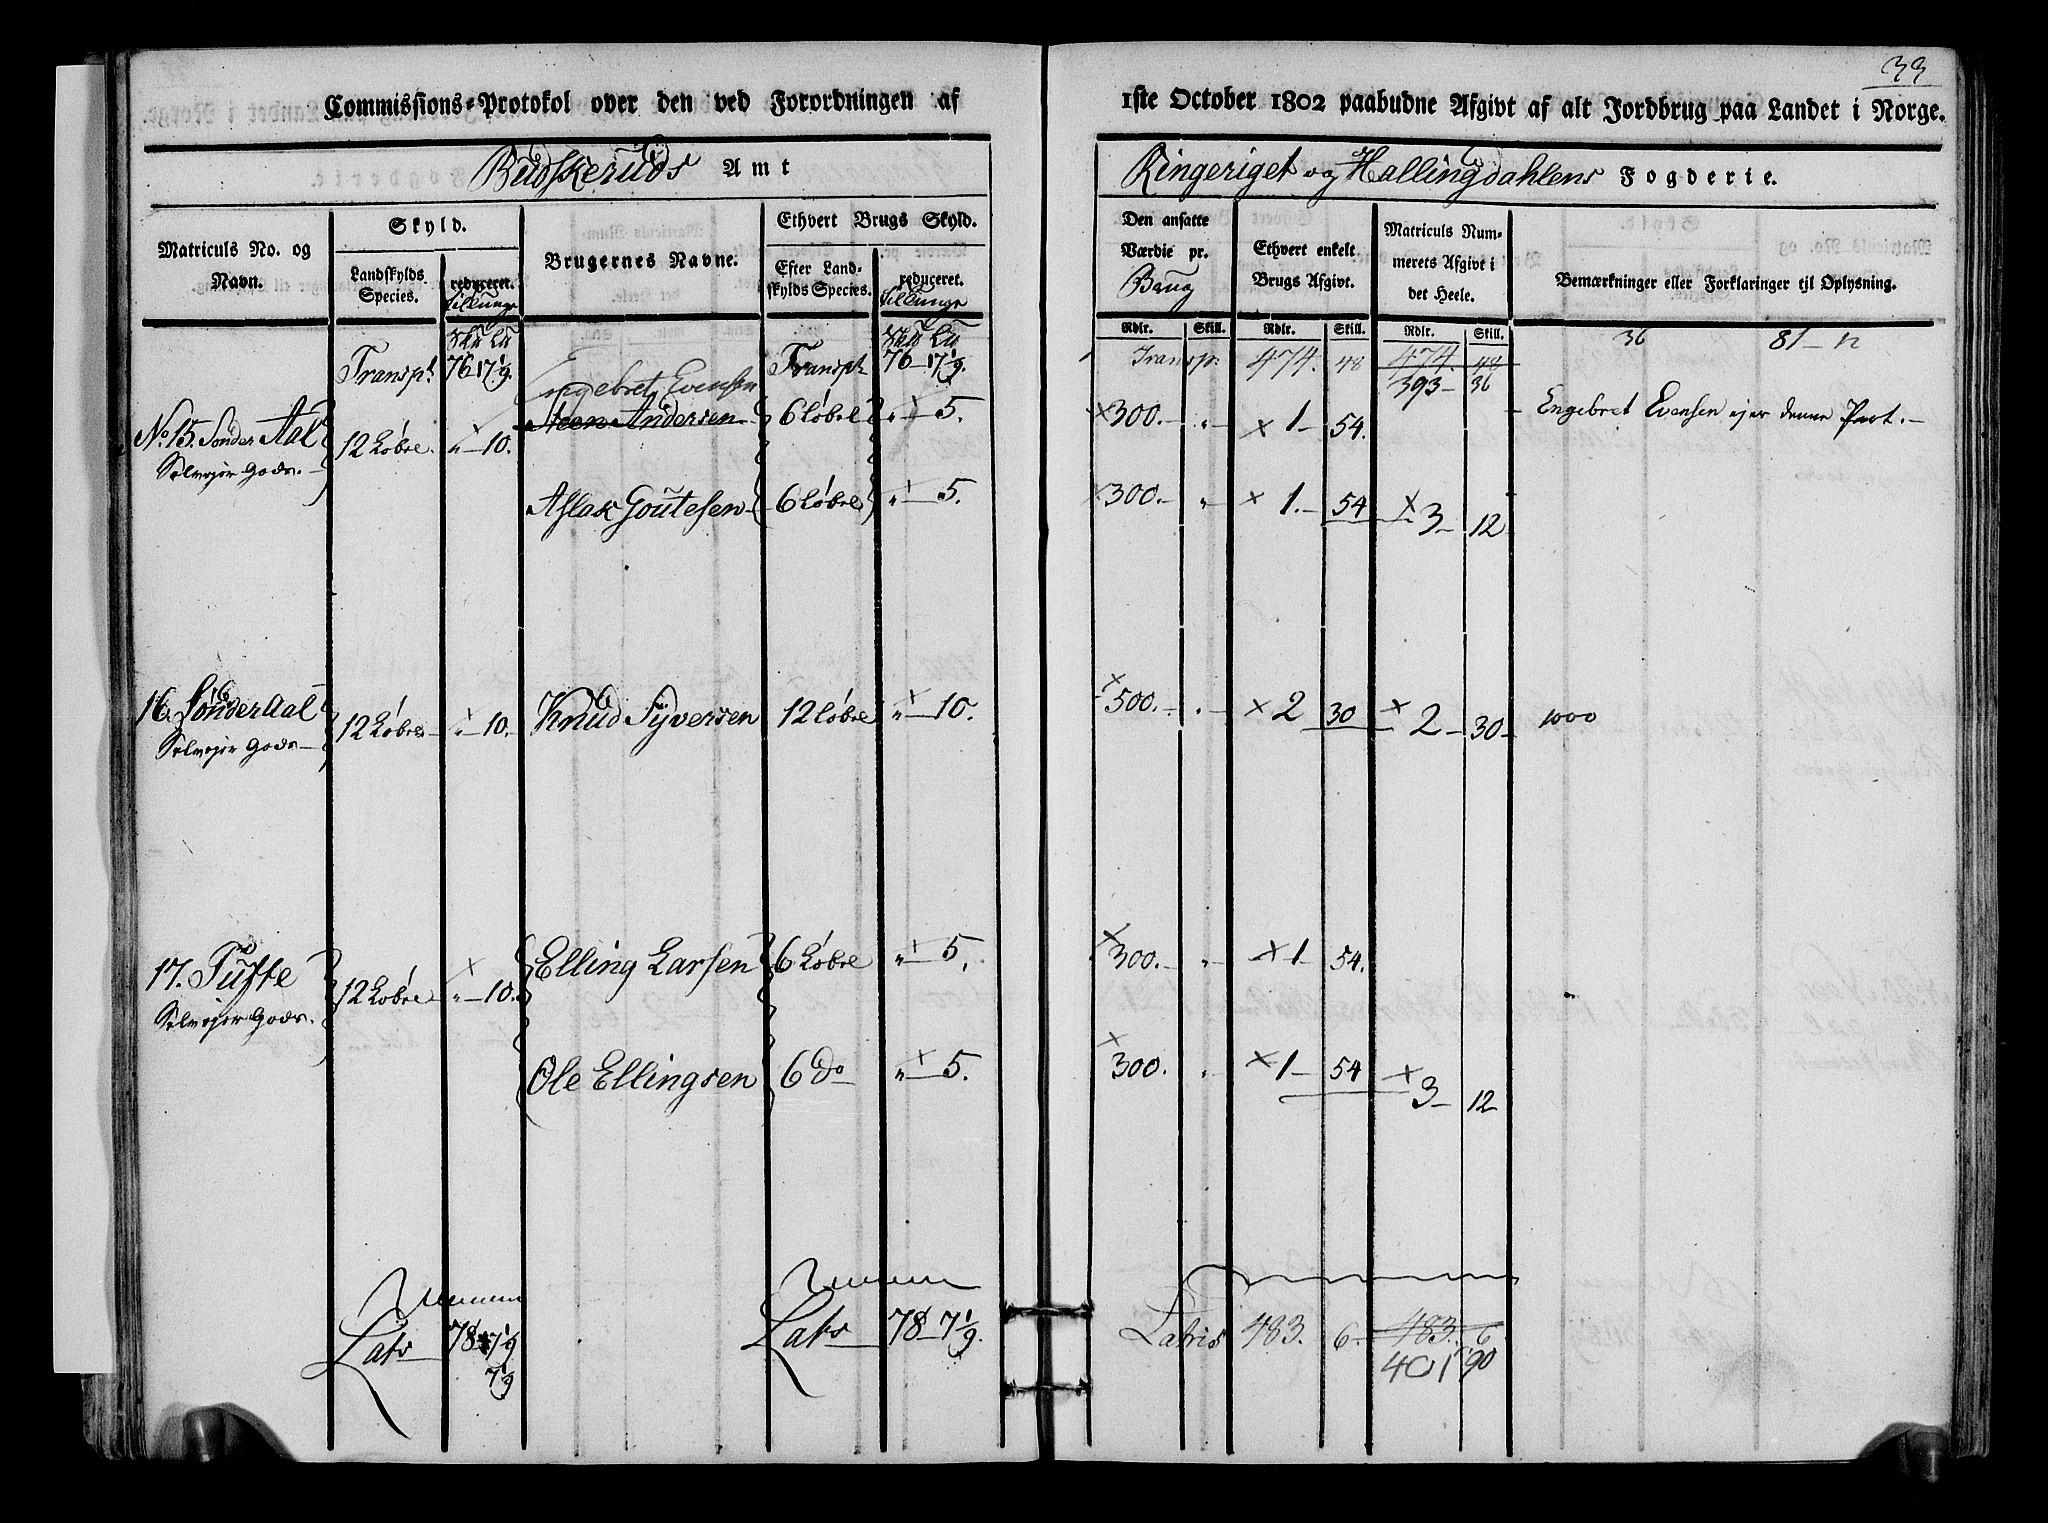 33
Commissions-Protokol over den ved Forordningen af 1ste October 1802 paabudne Afgivt af alt Jordbrug paa Landet i Norge.
Budskeruds Amt
Ringeriget og Hallingdahlens Fogderie.
Matriculs No. og Navn.
Skyld.
Landskylds Species.
reduceret.
Brugernes Navne.
Ethvert Brugs Skyld.
Efter Landskylds Species.
reduceret.
Den ansatte Værdie pr. Brug
Ethvert enkelt Brugs Afgivt.
Matriculs Nummerets Afgivt i det Heele.
Bemærkninger eller Forklaringer til Oplysning.
Rdlr. Skill. Rdlr. Skill. Rdlr. Skill.
Transpt 76 - 17 1/9. Transpt 76 - 17 1/9. Transpr 474. 48 474. 48 36 81 - 12
393 - 36
Engebret Evensen
No 15. Sønder Aal 12 Løbre. „ - 10. Steen Andersen 6 Løbre „ - 5. 300. - „ - 1 - 54. Engebret Evensen ejer denne Part. -
Selvejer Gods. -
Aslak Goutesen 6 Løbre „ - 5. 300. - „ - 1. - 54 3 - 12
16. Sønder Aal 12 Løbre - „ - 10. Knud Syversen 12 Løbre „ - 10. 500. - „ - 2 30 2 - 30 - 1000
Selvejer Gods -
17. Tufte 12 Løbre - „ - 10. Elling Larsen 6 Løbre „ - 5. 300. - „ - 1 - 54.
Selvejer Gods.
Ole Ellingsen 6 do „ - 5. 300. „ 1 - 54 3 - 12
Lats 78 - 7 1/9 Lats 78 - 7 1/9. Latris 483. 6. 483. 6
7 1/9
401 90